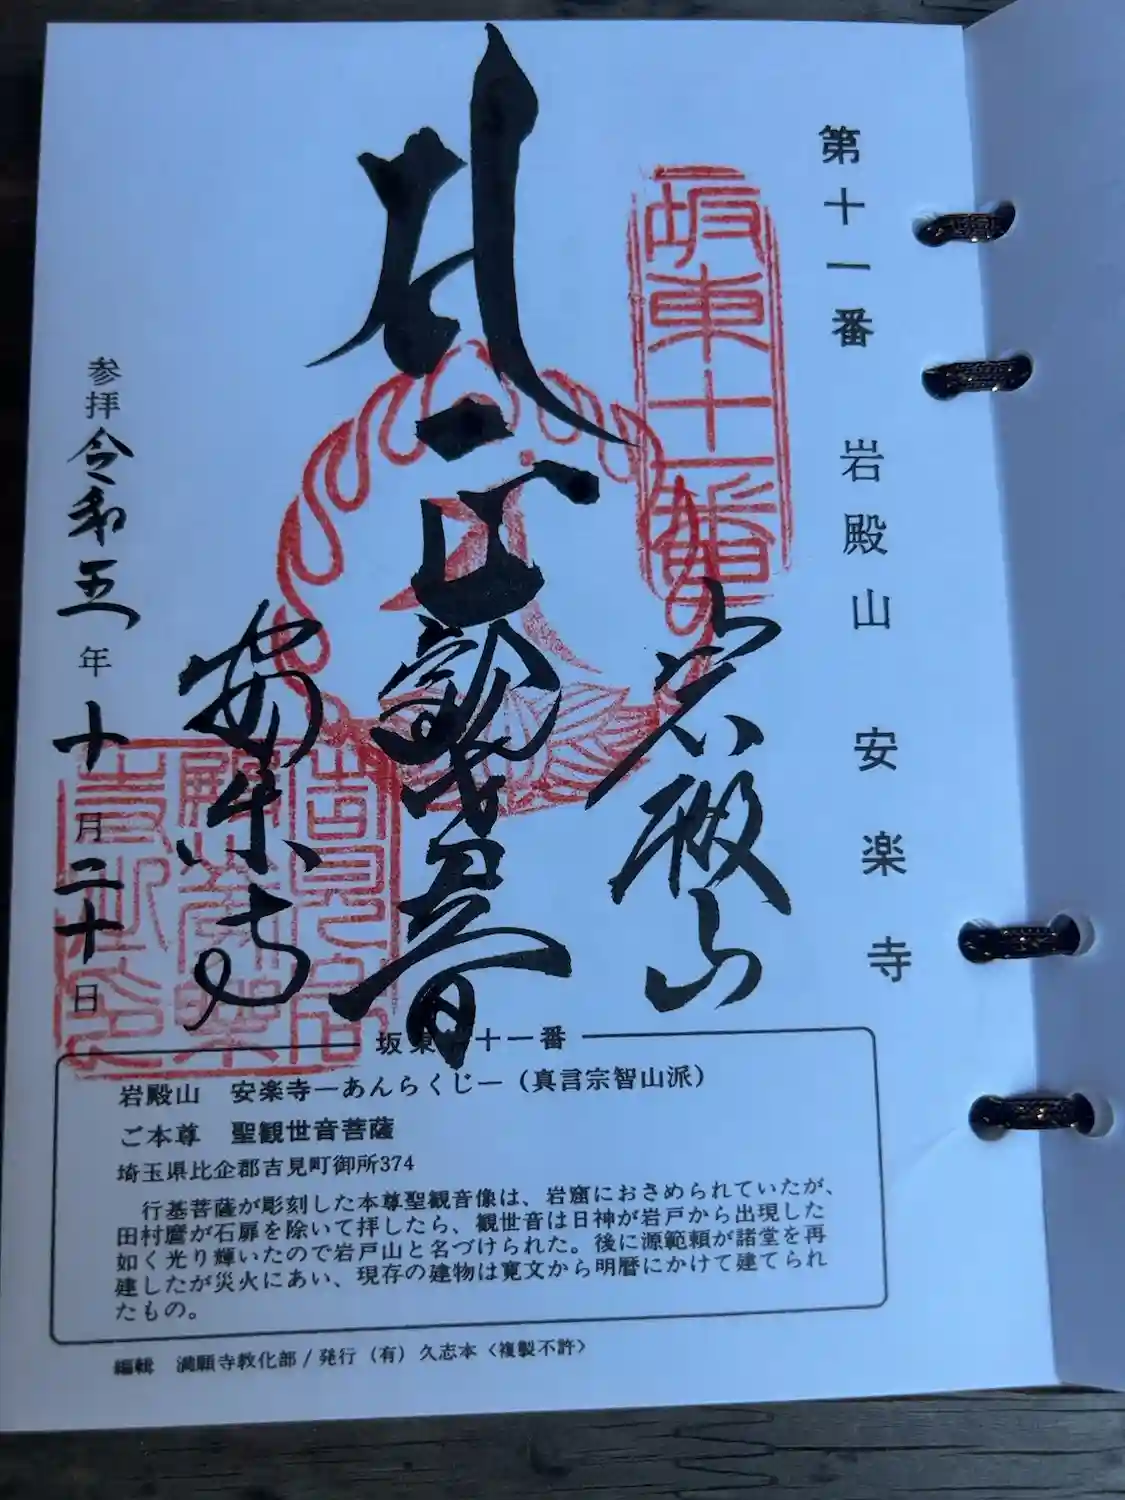 第十一番 岩殿山 安楽寺
坂東十一番
岩殿山
正観世音
安楽寺
参拝 令和五年十月二十日
坂東 十一番
岩殿山 安楽寺―あんらくじ―（真言宗智山派）
ご本尊 聖観世音菩薩
埼玉県比企郡吉見町御所374
行基菩薩が彫刻した本尊聖観音像は、岩窟におさめられていたが、
田村麿が石扉を除いて拝したら、観世音は日神が岩戸から出現した
如く光り輝いたので岩戸山と名づけられた。後に源範頼が諸堂を再
建したが災火にあい、現存の建物は寛文から明暦にかけて建てられ
たもの。
編輯 満願寺教化部/発行（有）久志本〈複製不許〉